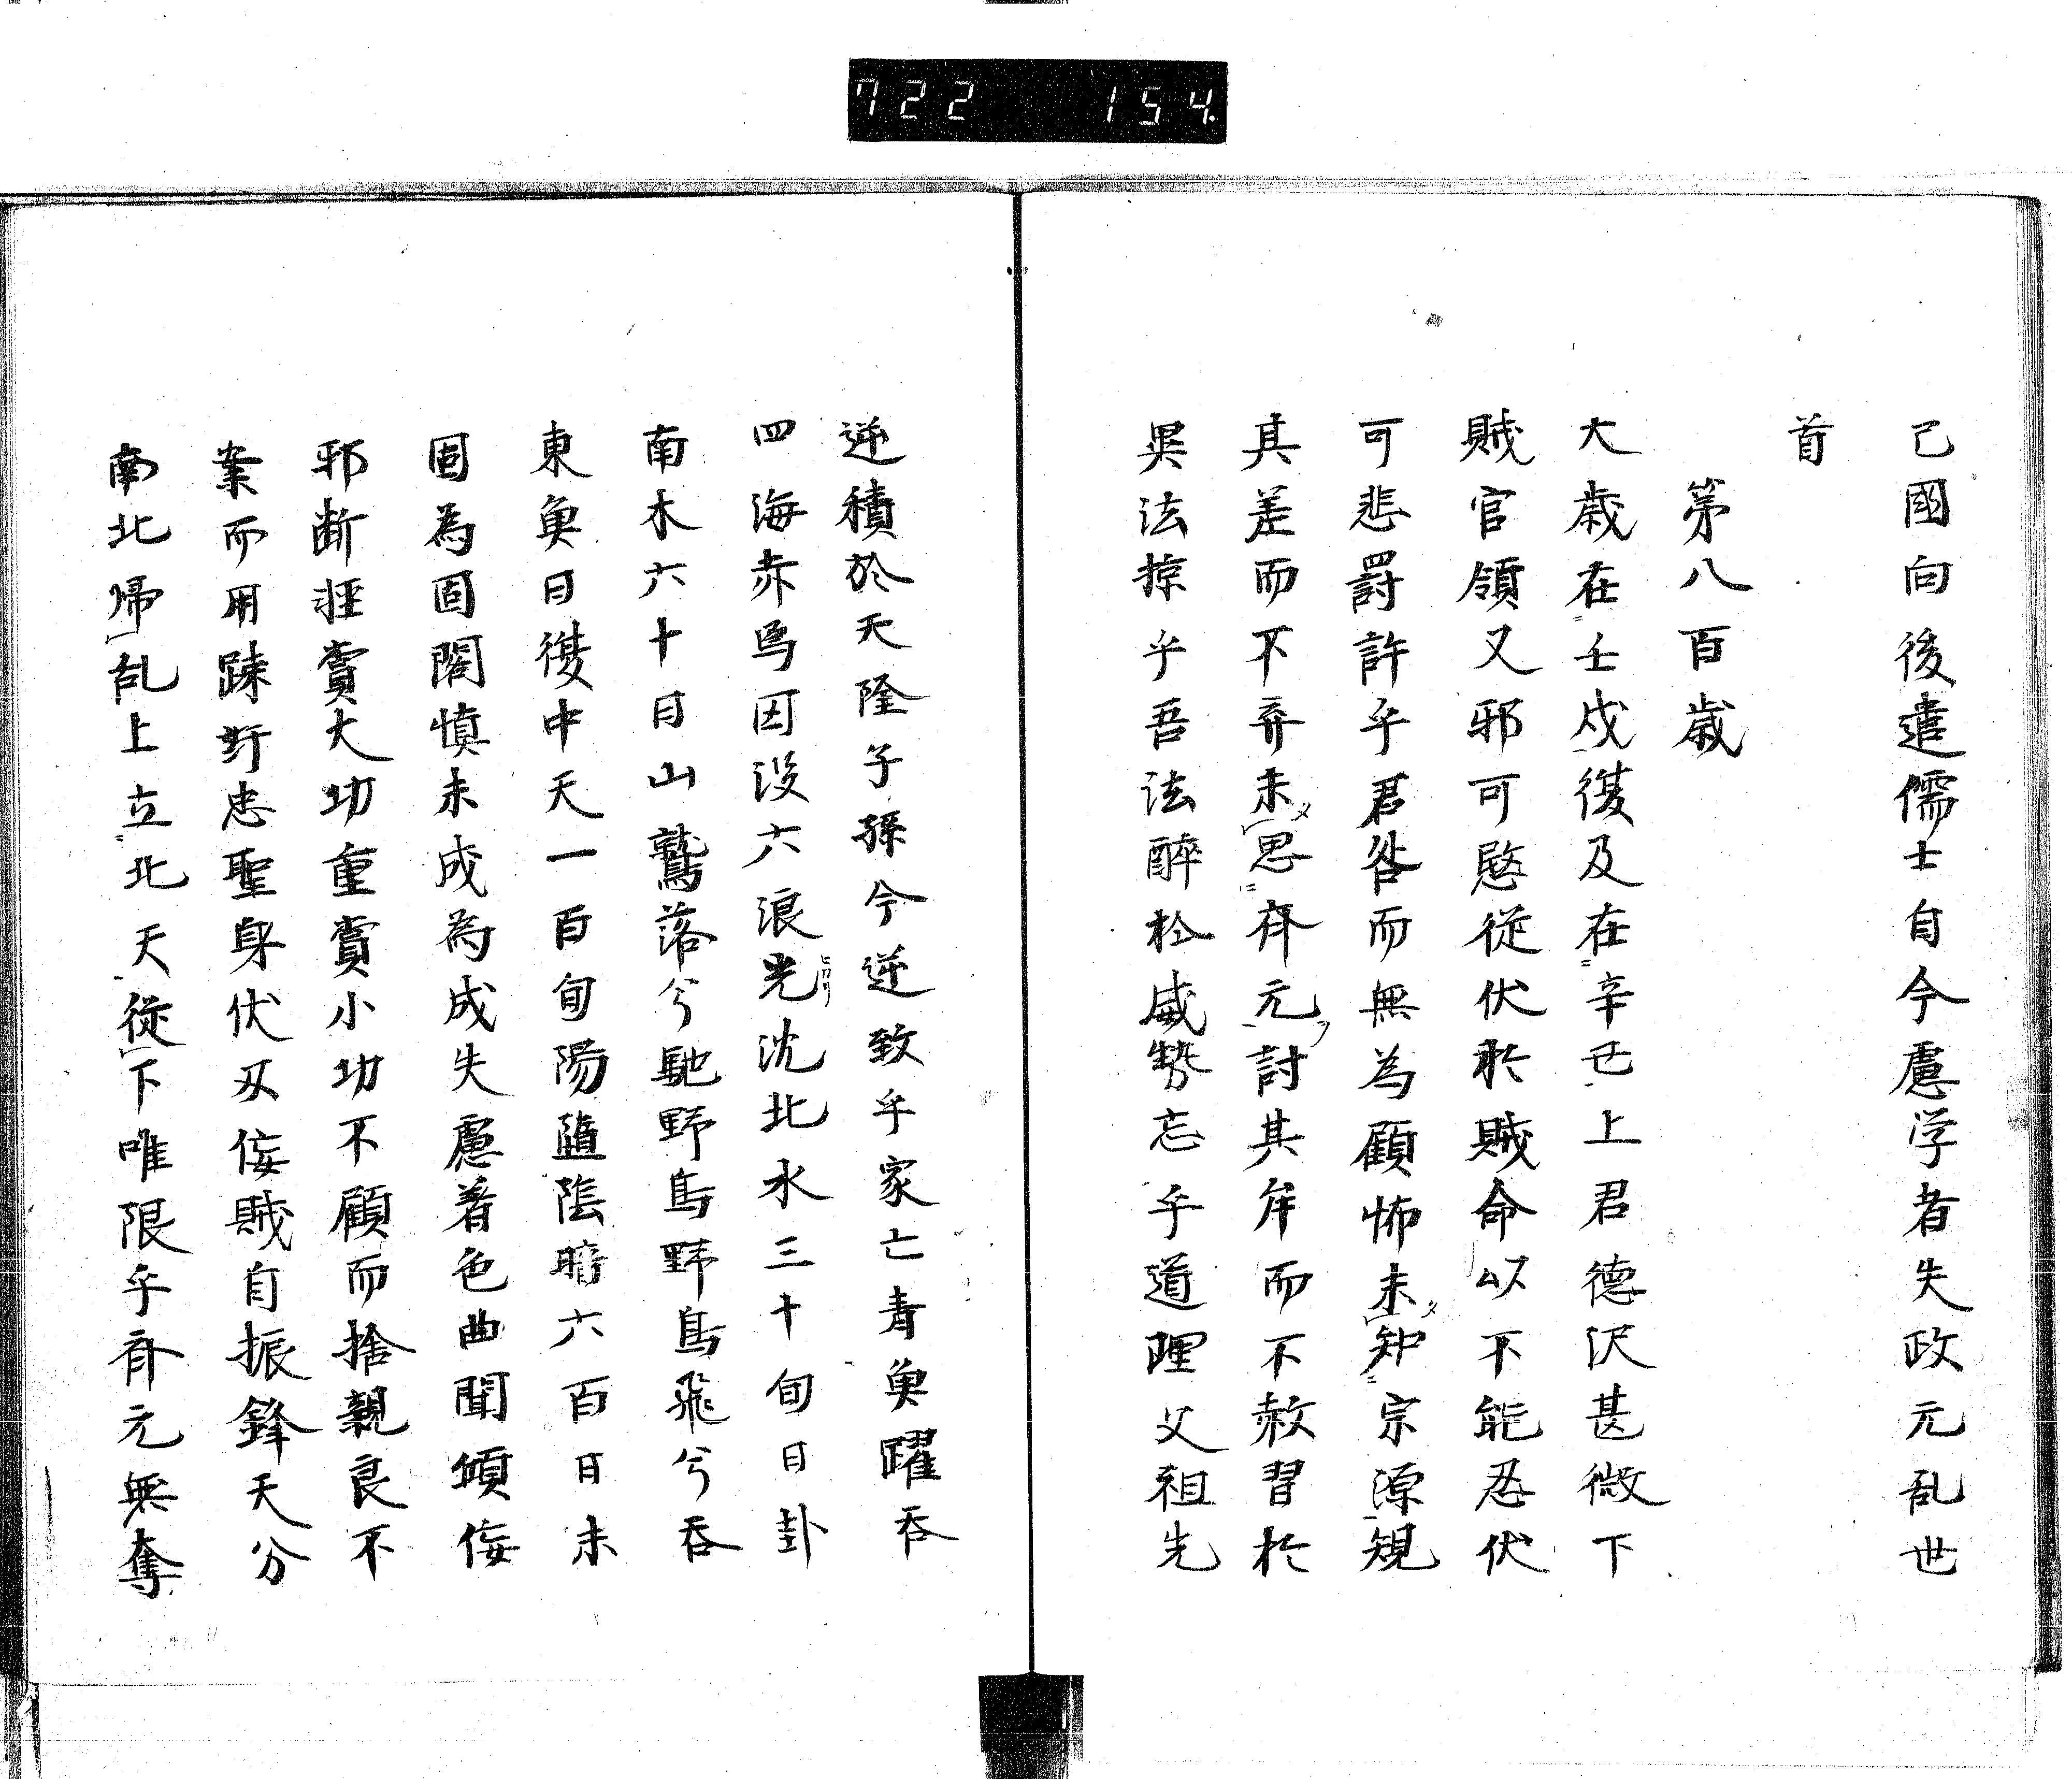 722 154.
己國向後遣儒士自今慮学者失政元乱世
首
第八百歳
大歳在壬戌復及在辛已上君德沢甚微下
賊官領又邪可愍従伏於賊命以不能忍伏
可悲罸許乎君咎而無為顧怖未メ知宗源規
其差而不弃未メ思斉元ヲ討其牟而不赦習於
異法掠乎吾法酔於威勢忘乎道理父祖先
逆積於天隆子孫今逆致乎家亡青魚躍吞
四海赤烏因没六浪光ヒカリ沈北水三十旬日卦
南木六十日山鷲落兮馳野鳥野鳥飛兮吞
東魚日復中天一百旬陽隨陰暗六百日未
固為固閣慎未成為成失慮着色曲聞傾侫
邪断狂賞大功重賞小功不顧而捨親良不
業而用踈奸忠聖身伏刄侫賊自振鋒天分
南北帰乱上立北天従下唯限乎斉元無奪